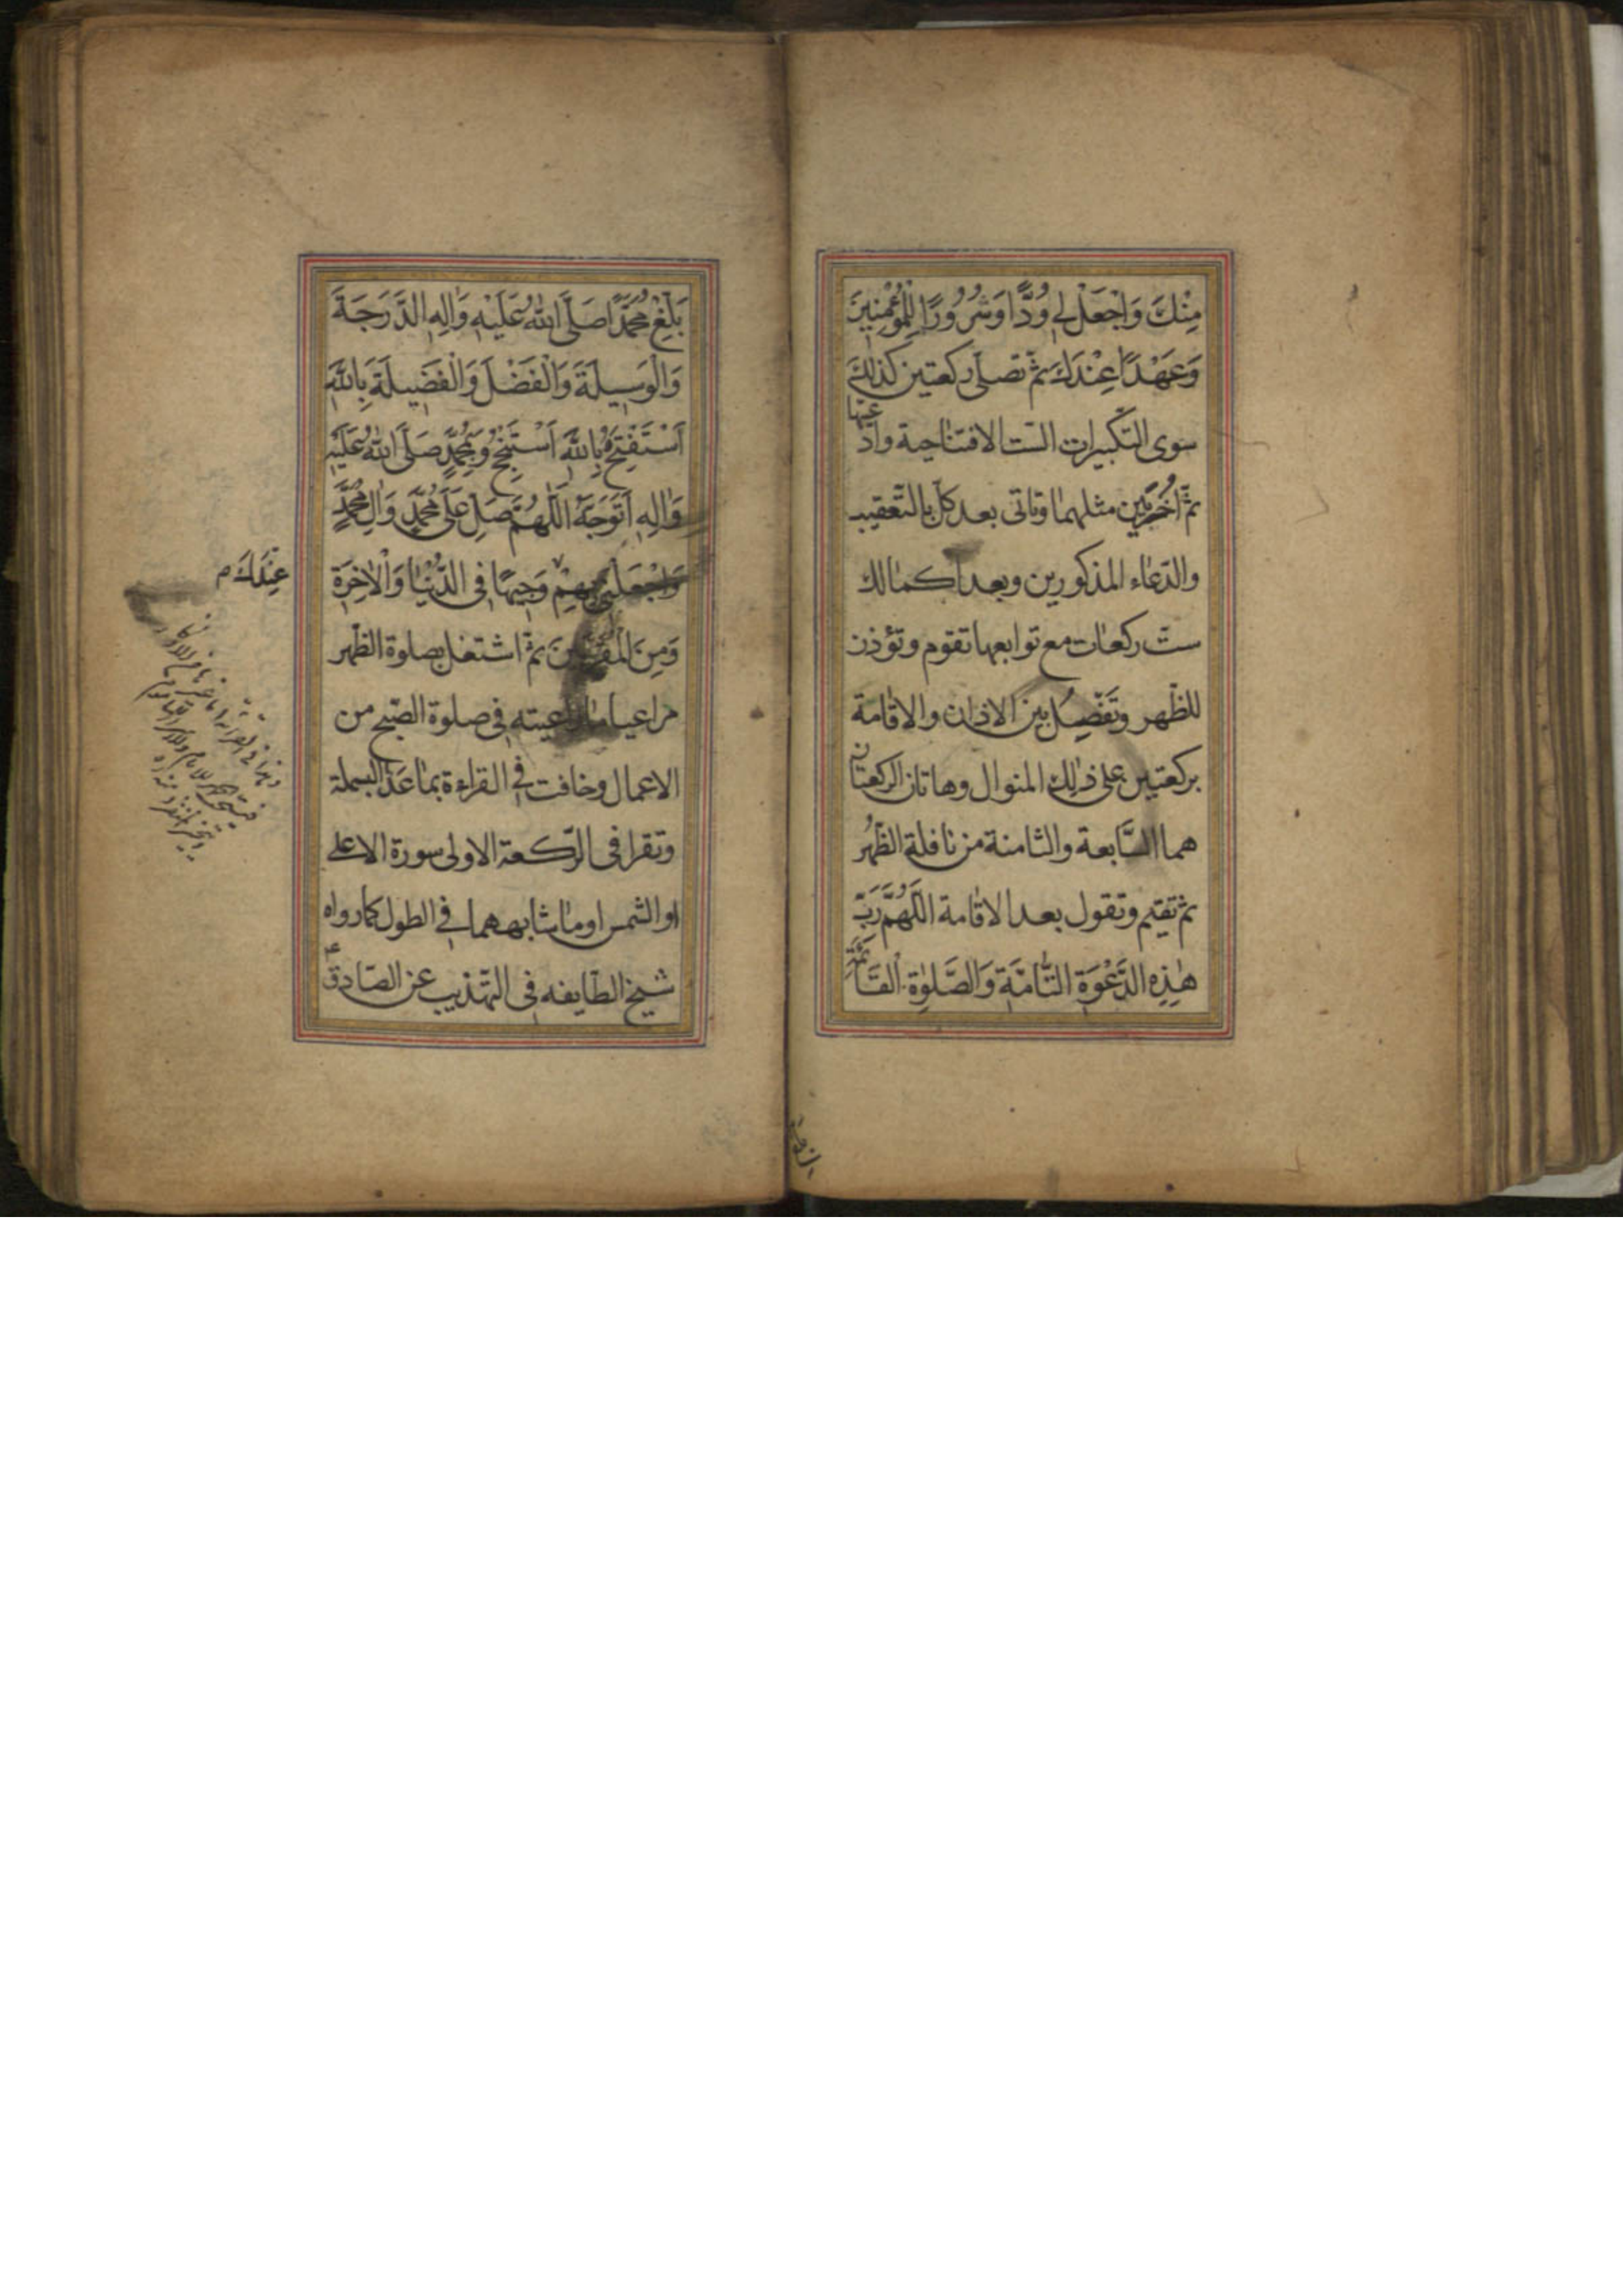 مِنْكَ وَاجْعَلْ لِي وُدًّا وَسُرُورًا لِلْمُؤْمِنِينَ
وَعَهْدًا عِنْدَكَ ثمّ تصلّى ركعتين كذلك
سوى التكبيرات الستّ الافتتاحية وادعيتها
ثمّ اُخريين مثلهما وتاتى بعد كلّ بالتّعقيب
والدّعاء المذكورين وبعد اكمالك
ستّ ركعات مع توابعها تقوم وتؤذن
للظّهر وتَفْصِلُ بين الاذان والاقامة
بركعتين على ذلك المنوال وهاتان الركعتان
هما السَّابعة والثامنة من نافلة الظّهر
ثمّ تقيم وتقول بعد الاقامة اَللّٰهُمَّ رَبَّ
هٰذِهِ الدَّعْوَةِ التَّامَّةِ وَالصَّلٰوةِ الْقَائِمَةِ
بَلِّغْ مُحَمَّدًا صَلَّى اللهُ عَلَيْهِ وَاٰلِهِ الدَّرَجَةَ
وَالْوَسِيلَةَ وَالْفَضْلَ وَالْفَضِيلَةَ بِاللّٰهِ
اَسْتَفْتِحُ وَبِاللّٰهِ اَسْتَنْجِحُ وَبِمُحَمَّدٍ صَلَّى اللهُ عَلَيْهِ
وَاٰلِهِ اَتَوَجَّهُ اَللّٰهُمَّ صَلِّ عَلٰى مُحَمَّدٍ وَاٰلِ مُحَمَّدٍ
وَاجْعَلْنِي بِهِمْ وَجِيهًا فِي الدُّنْيَا وَالْاٰخِرَةِ
عِنْدَكَ م
وَمِنَ الْمُقَرَّبِينَ ثمّ اشتغل بصلوة الظّهر
مراعيا ما راعيته فى صلوة الصّبح من
الاعمال وخافت فى القراءة بما عَدَا البسملة
وتقرا فى الرّكعة الاولى سورة الاعلى
او الشمس او ما شابههما فى الطول كما رواه
شيخ الطّايفه فى التهّذيب عن الصّادق ع